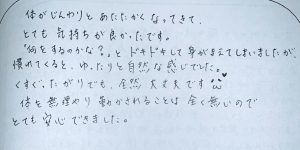 体がじんわりと あたたかくなってきて、
とても 気持ちが 良かったです。
"何をするのかな?"と ドキドキして 身がまえてしまいましたが、
慣れてくると、ゆったりと 自然な 感じでした。
くすぐったがりでも、全然 大丈夫です
体を 無理やり 動かされることは 全く無いので
とても 安心できました。